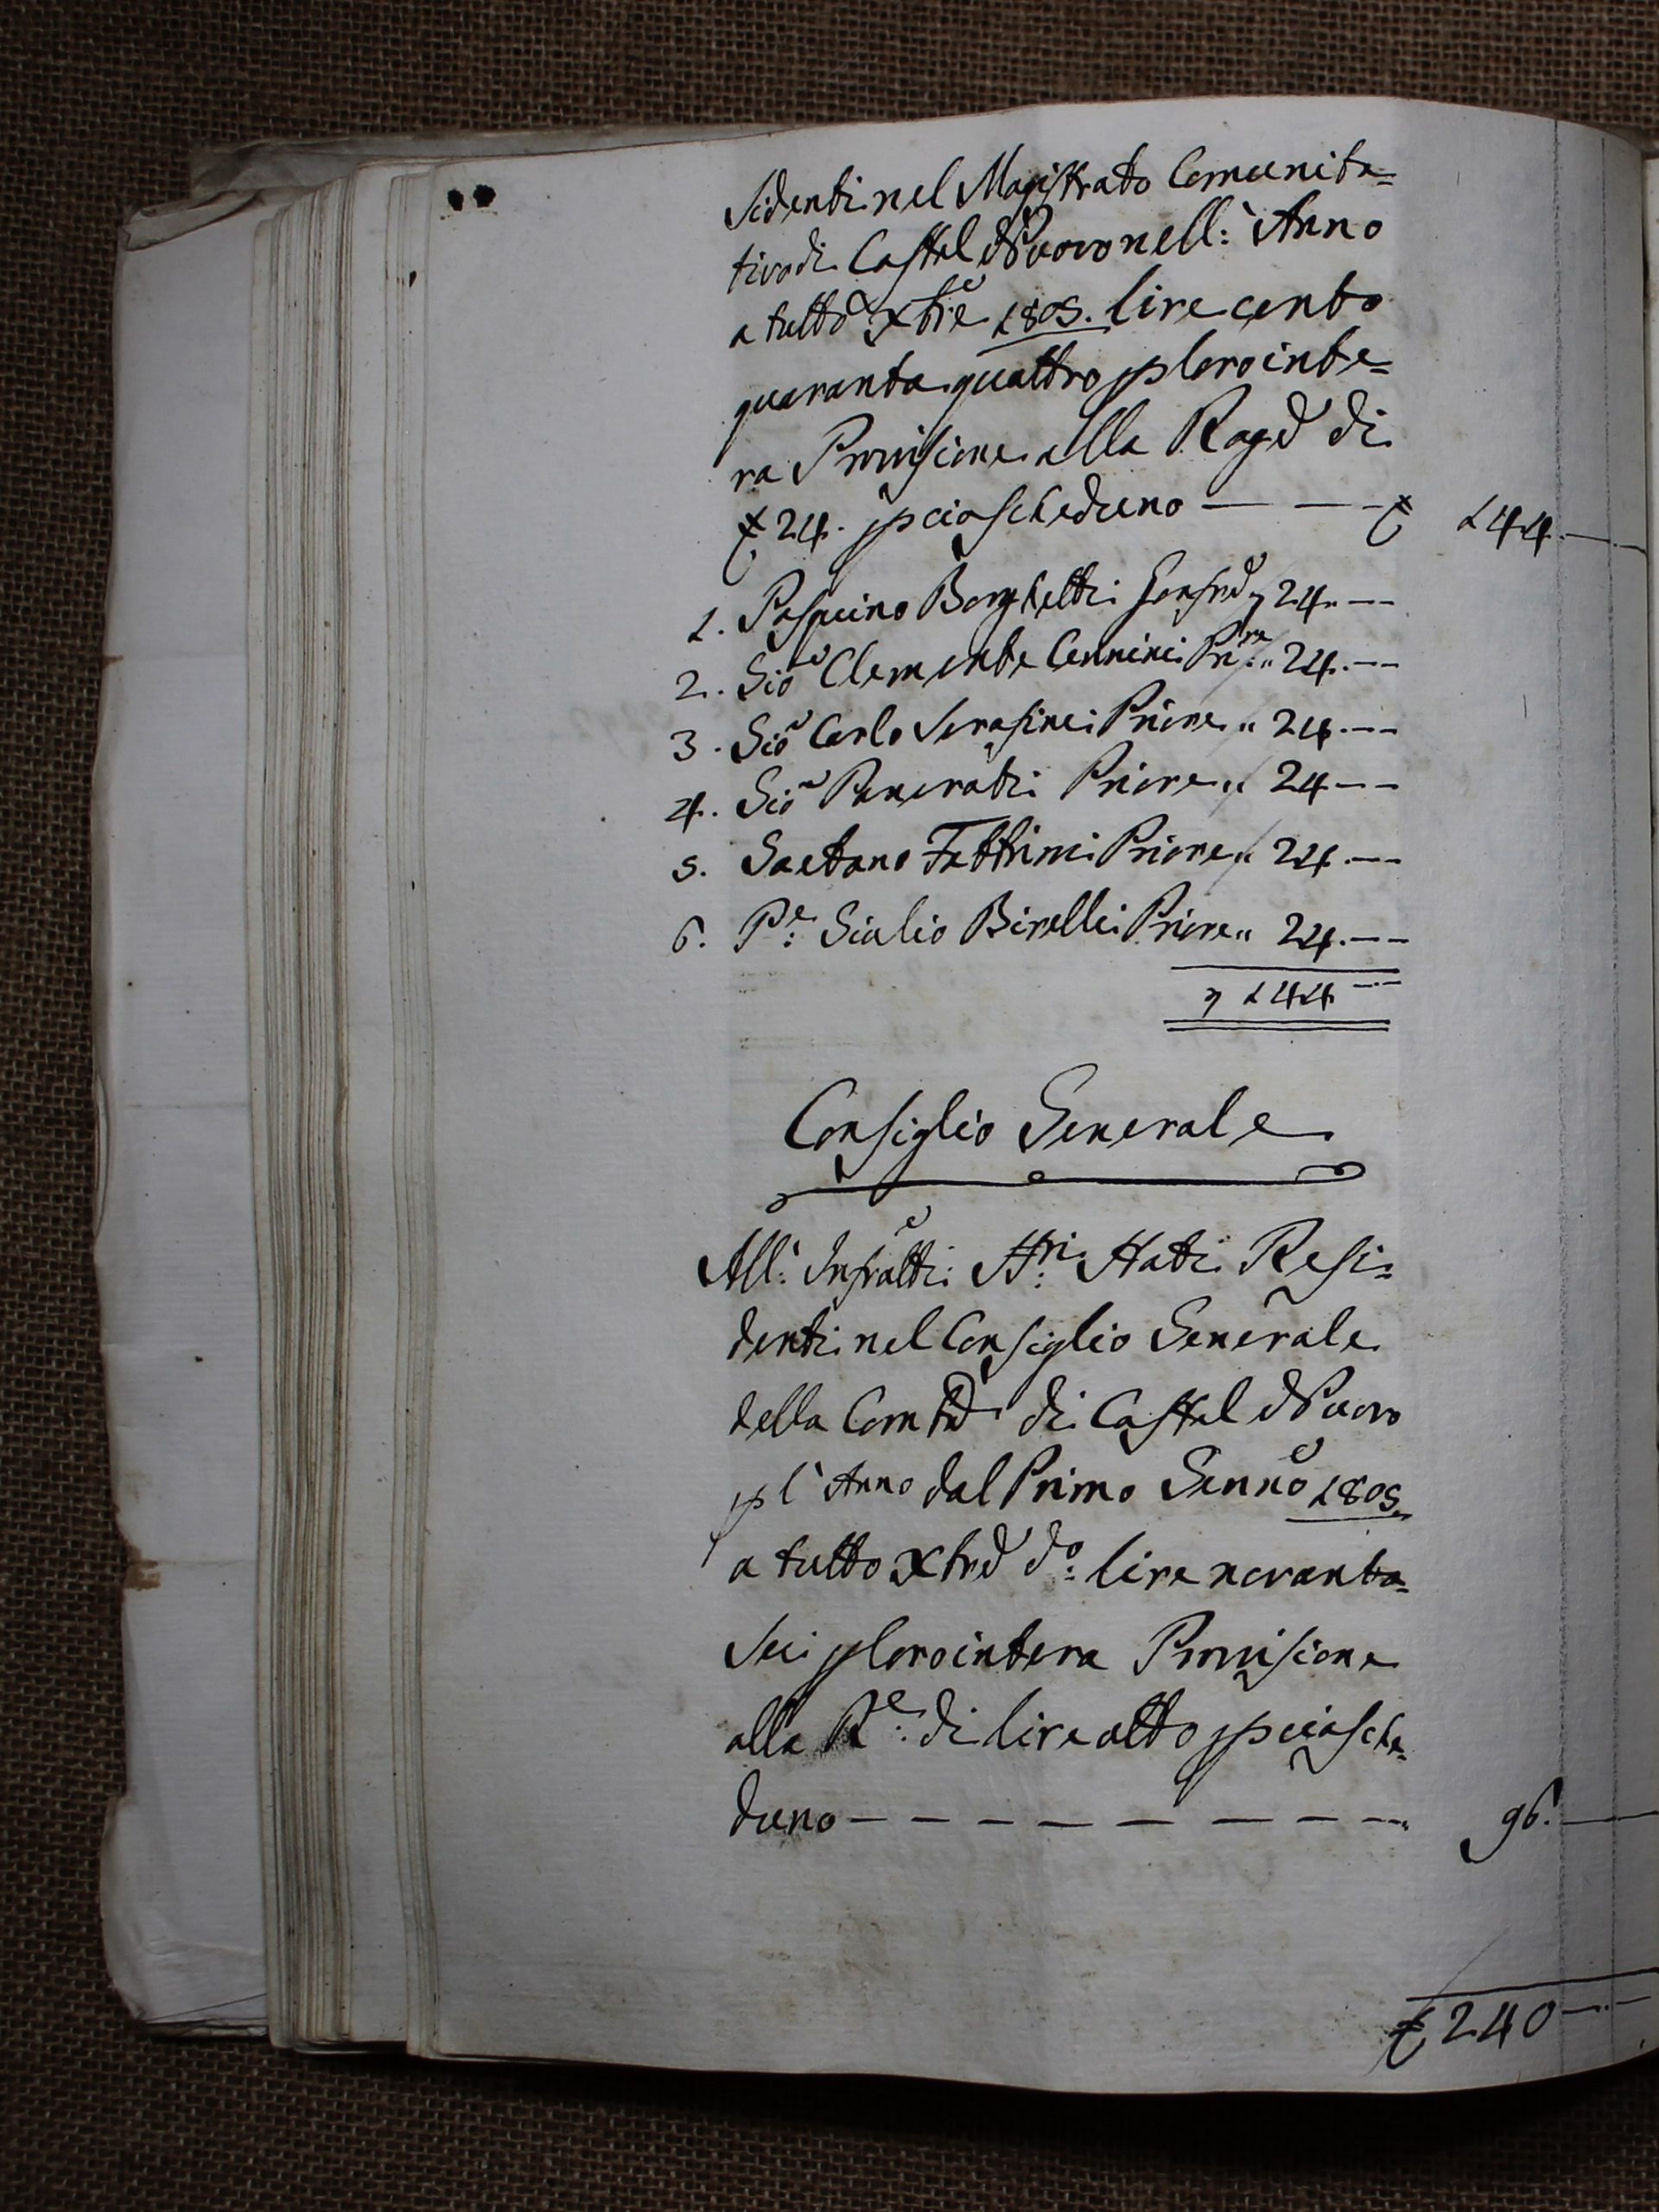 sidenti nel Magistrato Comunita=
tivo di Castel Nuovo nell: Anno
a tutto Xbre 1805. lire cento
quaranta quattro p loro inte=
ra Provisione alla Rag.e di
£ 24. p ciascheduno — — — £ 144.—
1. Pasquino Borghetti Gonfre „ 24.——
2. Gio Clemente Cennini Pri:re „ 24.——
3. Gio Carlo Serafini Priore „ 24.——
4. Gio Pancrati Priore „ 24——
5. Gaetano Fattrini Priore „ 24.——
6. P:e Giulio Birelli Priore „ 24.——
„ 144 ——
Consiglio Generale
All: Infratti SS:ri Stati Resi=
denti nel Consiglio Generale
della Comtà di Castel Nuovo
p l'Anno dal Primo Genno 1805.
a tutto Xbre do: lire novanta=
sei p loro intera Provisione
alla R:e di lire otto p ciasche=
duno — — — — — — — — „ 96.—
£ 240 ——